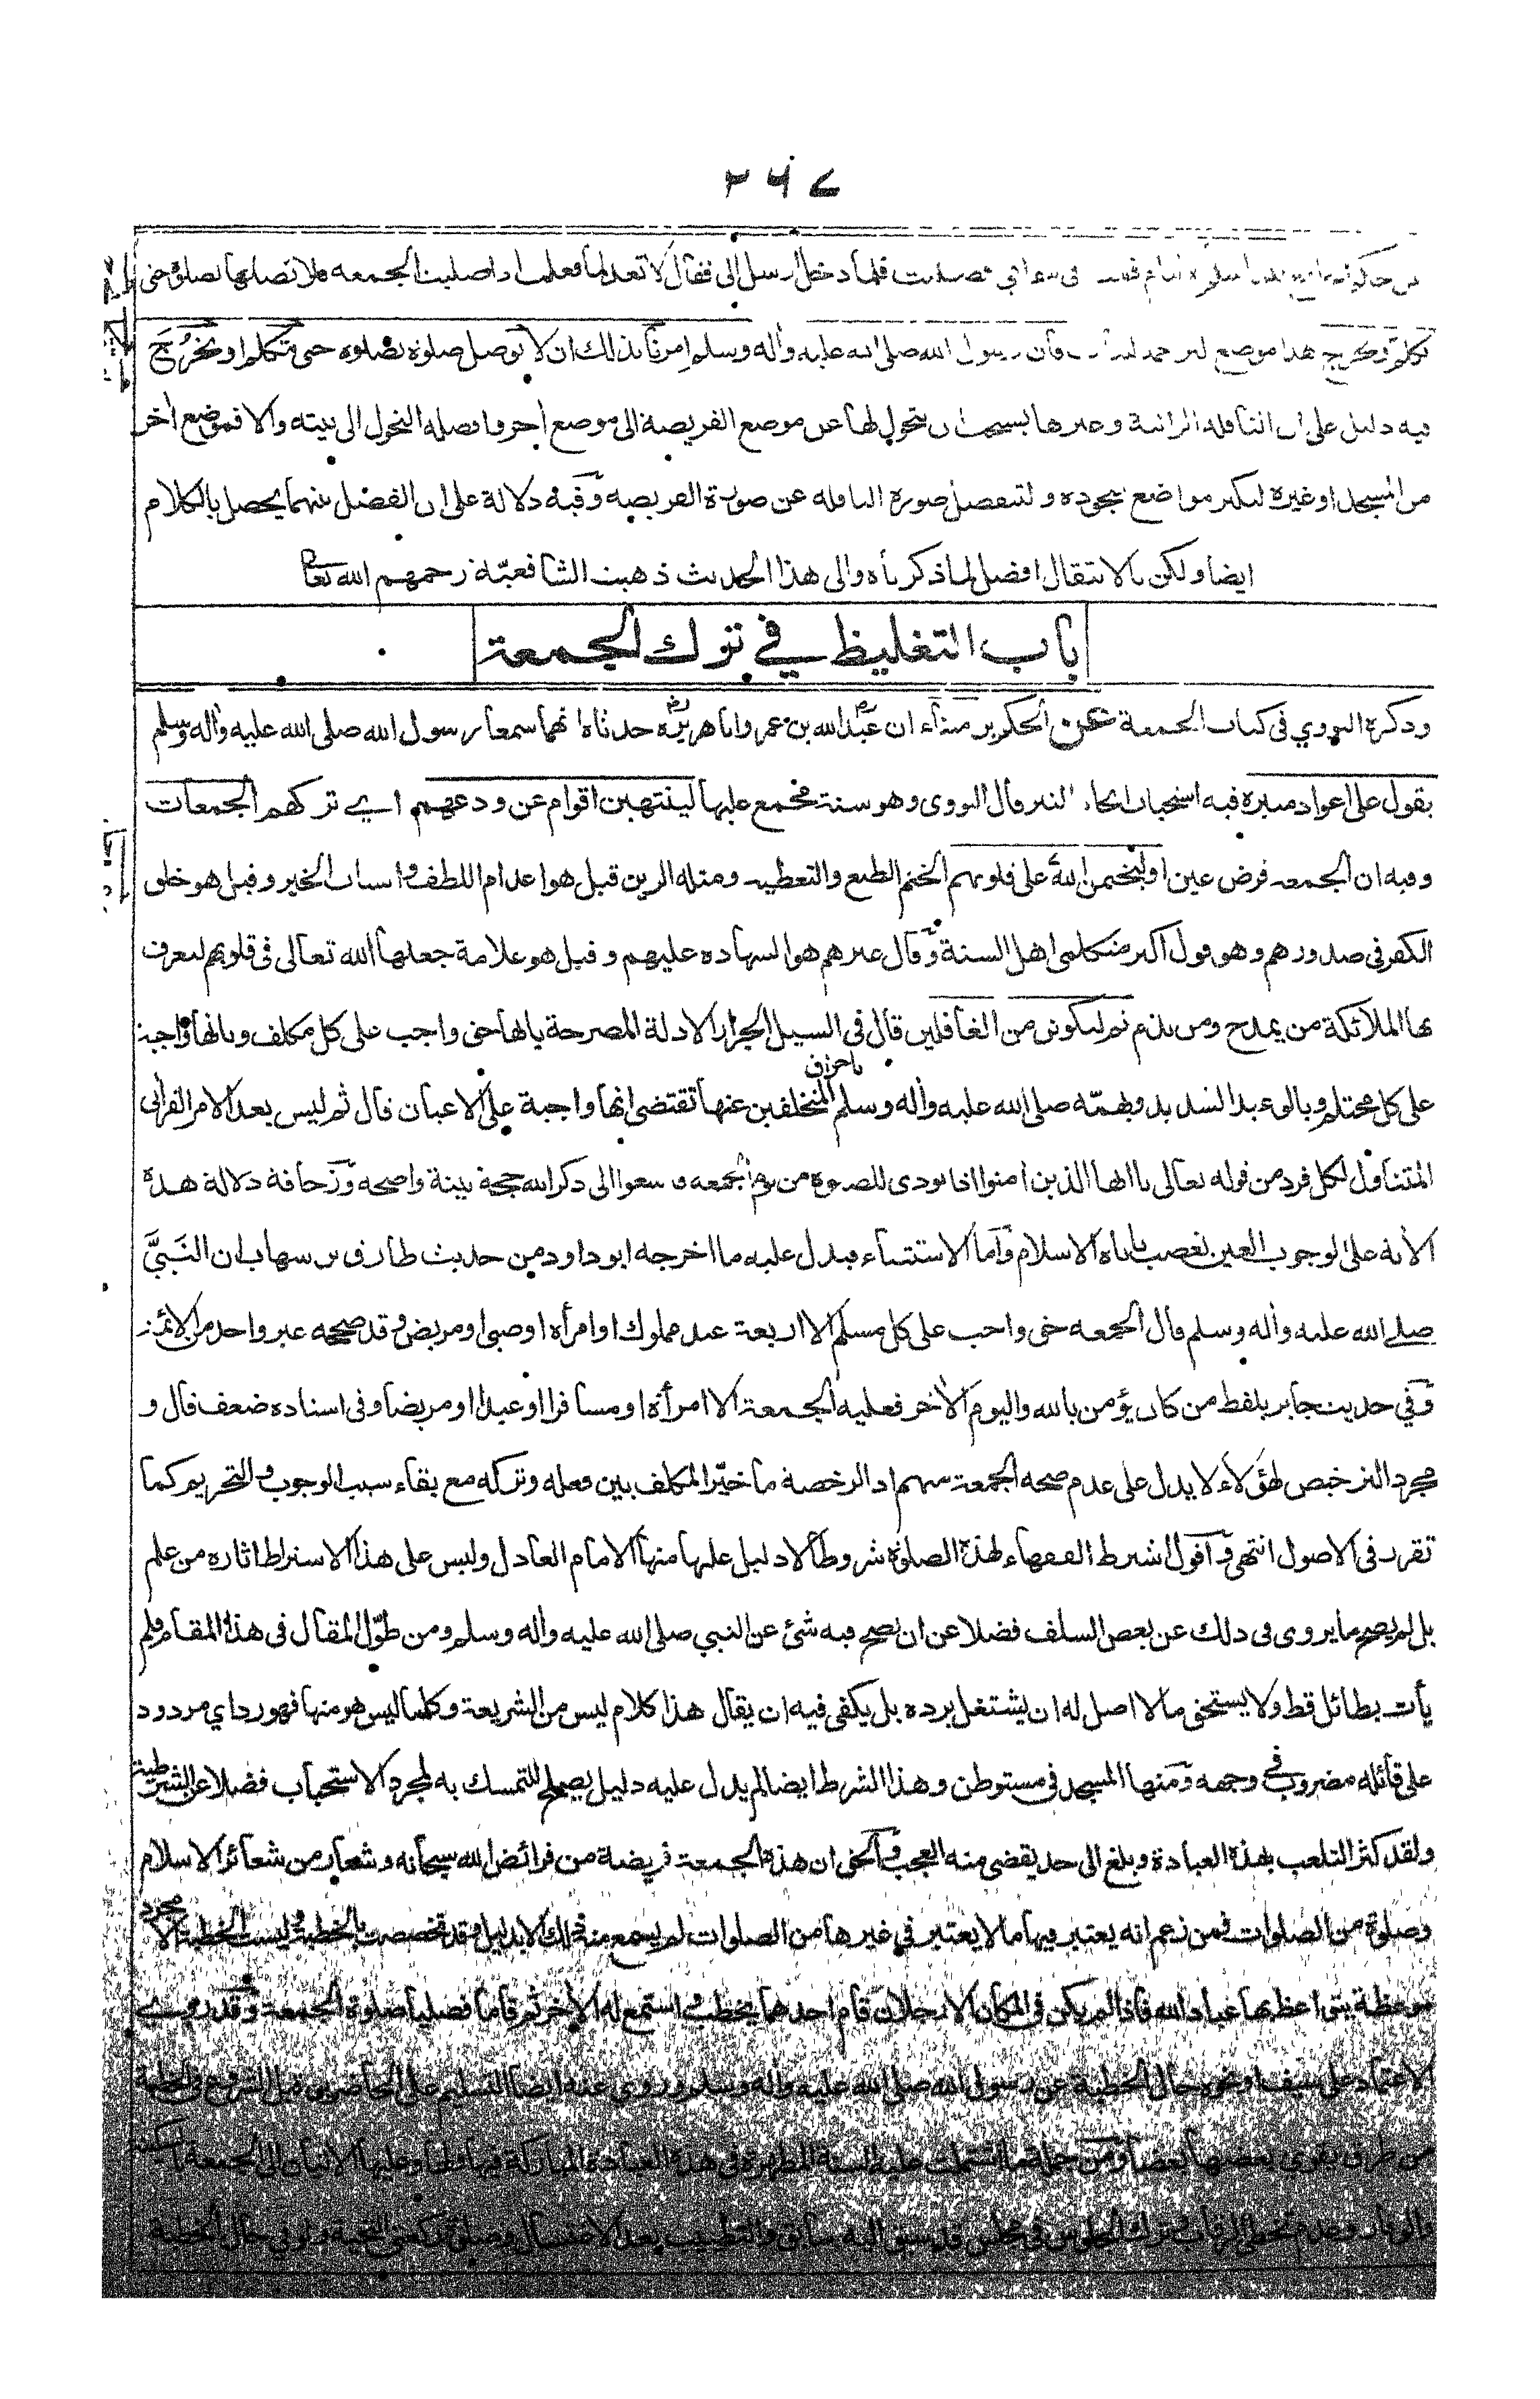 ۲۶۷
فلما دخل ارسل الى فقال لا تعد لما فعلت اذا صليت الجمعه فلا تصلها بصلوة حتى
تكلم او تخرج هذا موضع فان رسول الله صلى الله عليه وأله وسلم امرنا بذلك ان لا توصل صلوة بصلوة حتى نتكلم او نخرج
فيه دليل على ان النافلة الراتبة وغيرها يستحب ان يتحول لها عن موضع الفريضة الى موضع أخر وافضله التحول الى بيته والا فموضع أخر
من المسجد او غيره ليكثر مواضع سجوده ولتنفصل صورة النافله عن صورة الفريضه وفيه دلالة على ان الفصل بينهما يحصل بالكلام
ايضا ولكن بالانتقال افضل لما ذكرناه والى هذا الحديث ذهبت الشافعيّة رحمهم الله تعا
باب التغليظ في ترك الجمعة
وذكره النووي في كتاب الجمعة عن الحكم بن ميناء ان عبد الله بن عمر وابا هريرة حدثاه انهما سمعا رسول الله صلى الله عليه وأله وسلم
يقول على اعواد منبره فيه استحباب اتخاذ المنبر قال النووى وهو سنة مجمع عليها لينتهين اقوام عن ودعهم اي تركهم الجمعات
وفيه ان الجمعه فرض عين او ليختمن الله على قلوبهم الختم الطبع والتغطيه ومثله الرين قيل هو اعدام اللطف واسباب الخير وقيل هو خلق
الكفر فى صدورهم وهو قول اكثر متكلمى اهل السنة وقال غيرهم هو الشهاده عليهم وقيل هو علامة جعلها الله تعالى فى قلوبهم لتعرف
بها الملائكة من يمدح ومن يذم ثم ليكونن من الغافلين قال فى السيل الجرار الادلة المصرحة بانها حق واجب على كل مكلف وبانها واجبة
على كل محتلم وبالوعيد الشديد وبهمّه صلى الله عليه وأله وسلم باحراق المتخلفين عنها تقتضى انها واجبة على الاعيان قال ثم ليس بعد الامر القرأنى
المتناول لكل فرد من قوله تعالى يا ايها الذين امنوا اذا نودى للصلوة من يوم الجمعه فاسعوا الى ذكر الله حجة بينة واضحه وزحافة دلالة هذه
الأية على الوجوب العين تعصب باباه الاسلام وأما الاستثناء فيدل عليه ما اخرجه ابو داود من حديث طارق بن شهاب ان النَبيَّ
صلے الله عليه وأله وسلم قال الجمعه حق واجب على كل مسلم الا اربعة عبد مملوك او امرأه او صبى او مريض وقد صححه غير واحد من الائمة
وفي حديث جابر بلفظ من كان يؤمن بالله واليوم الأخر فعليه الجمعة الا امرأة او مسافرا او عبدا او مريضا وفى اسناده ضعف قال و
مجرد الترخيص لهؤلاء لا يدل على عدم صحه الجمعة منهم اذ الرخصة ما خيّر المكلف بين فعله وتركه مع بقاء سبب الوجوب والتحريم كما
تقرر فى الاصول انتهى وأقول اشترط الفقهاء لهذه الصلوة شروطا لا دليل عليها منها الامام العادل وليس على هذا الاشتراط اثارة من علم
بل لم يصح ما يروى فى ذلك عن بعض السلف فضلا عن ان يصح فيه شئ عن النبي صلى الله عليه وأله وسلم ومن طوّل المقال فى هذا المقام فلم
يأت بطائل قط ولا يستحق مالا اصل له ان يشتغل برده بل يكفى فيه ان يقال هذا كلام ليس من الشريعة وكلما ليس هو منها فهو رد اي مردود
على قائله مضروب في وجهه ومنها المسجد فى مستوطن وهذا الشرط ايضا لم يدل عليه دليل يصلح للتمسك به لمجرد الاستحباب فضلا عن الشرطية
ولقد كثر التلعب بهذه العبادة وبلغ الى حد يقضى منه العجب والحق ان هذه الجمعة فريضة من فرائض الله سبحانه وشعار من شعائر الاسلام
وصلوة من الصلوات فمن زعم انه يعتبر فيها مالا يعتبر في غيرها من الصلوات لم يسمع منه ذلك الا بدليل وقد تخصصت بالخطبة وليست الخطبة الا مجرد
موعظة يتواعظ بها عباد الله فاذا لم يكن فى المكان الا رجلان قام احدهما يخطب واستمع له الأخر ثم قاما فصليا صلوة الجمعة وقد روے
الاعتماد على سيف او نحوه حال الخطبة عن رسول الله صلى الله عليه وأله وسلم وروى عنه ايضا التسليم على الحاضرين قبل الشروع فى الخطبة
من طرق يقوى بعضها بعضا ومن جملة ما اشتملت عليه السنة المطهرة فى هذه العبادة المباركة فيها ولها وعليها الاتيان الى الجمعة بالسكينة
والوقار وعدم تخطى الرقاب وترك الجلوس فى مجلس قد سبق اليه سابق والتطيب بعد الاغتسال وصلوة ركعتى التحية ولو في حال الخطبة